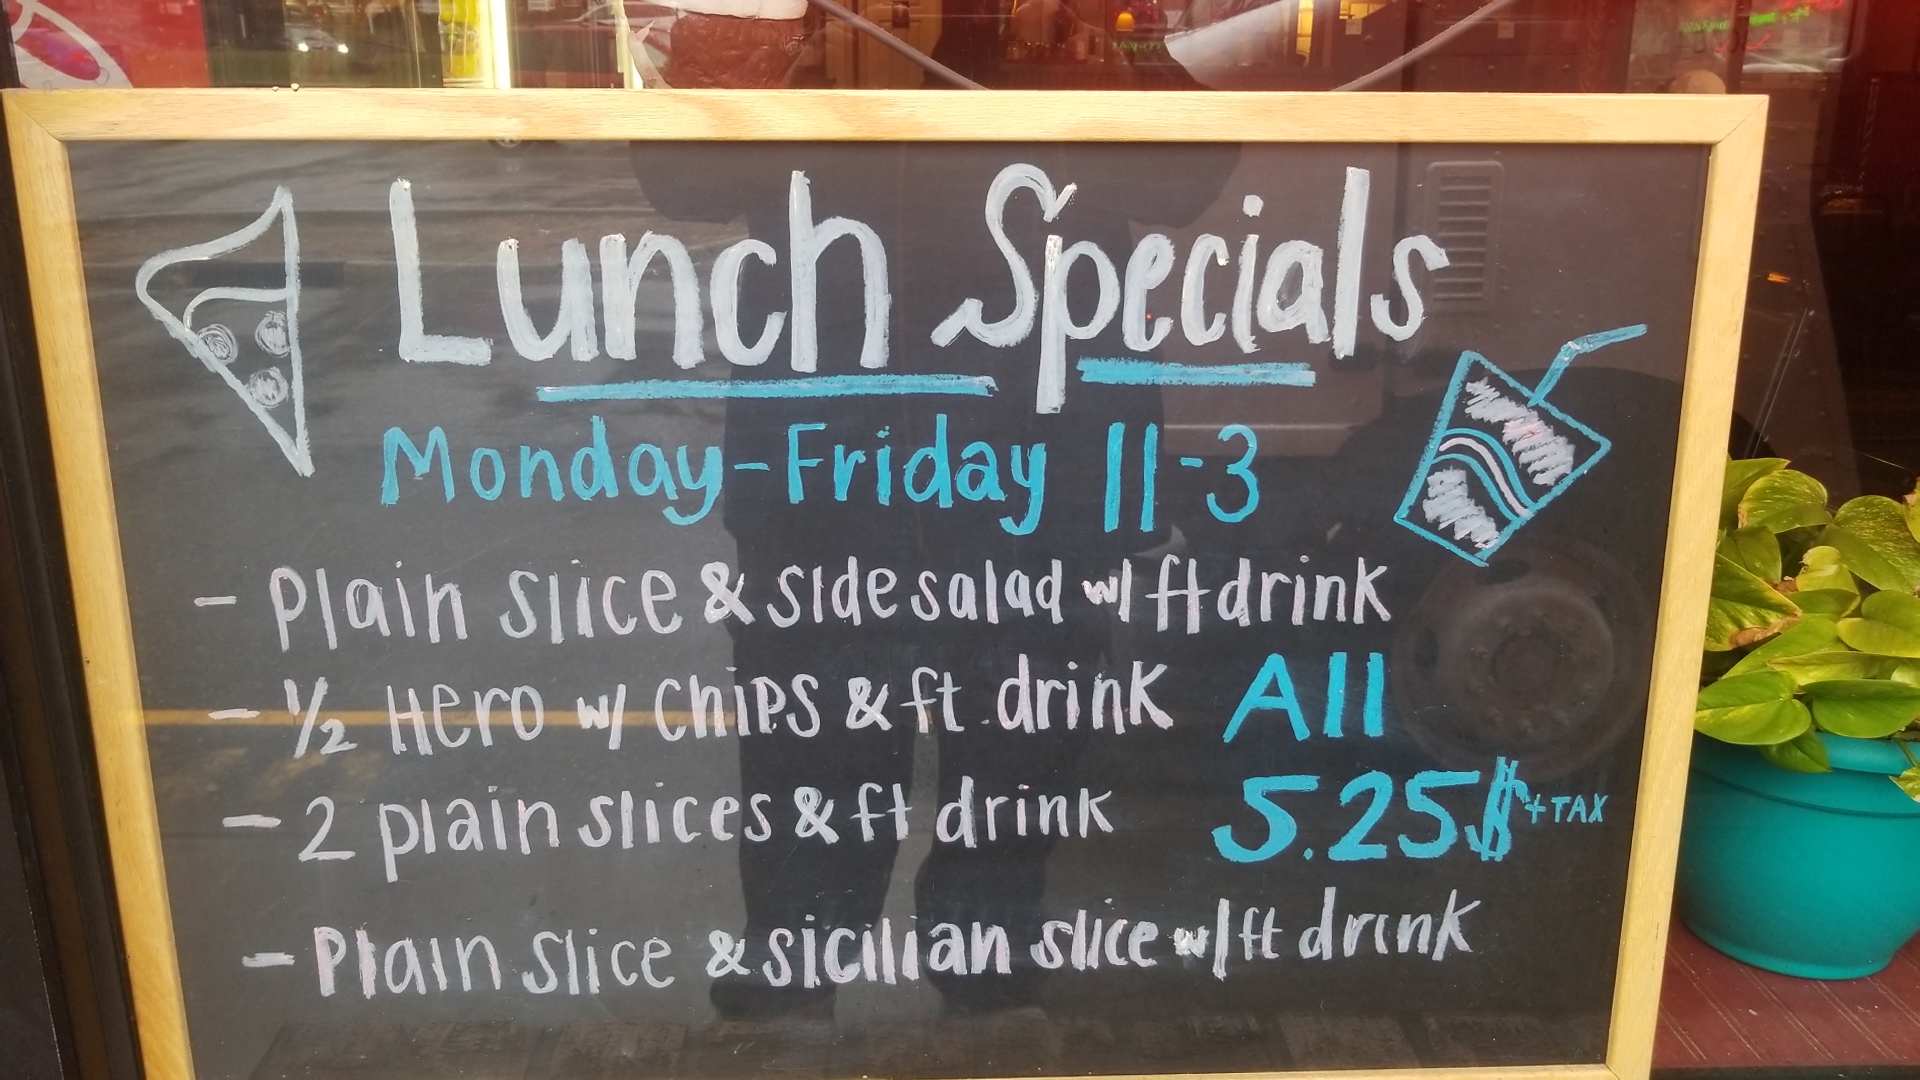 Lunch Specials
Monday-Friday 11-3
- Plain slice & side salad w/ ft drink
- 1/2 Hero w/ chips & ft drink
All
- 2 plain slices & ft drink
5.25$ + TAX
- Plain slice & sicilian slice w/ ft drink